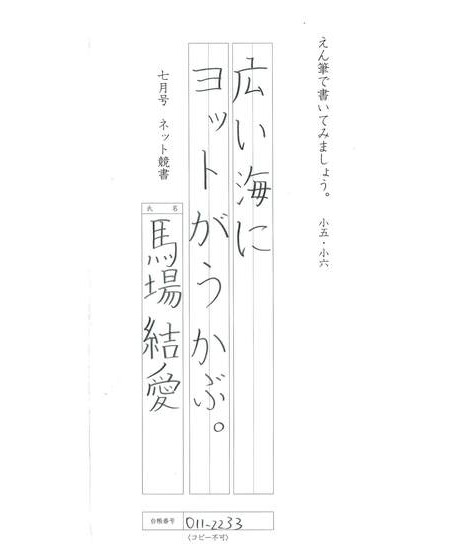 えん筆で書いてみましょう。 小五・小六
広い海に
ヨットがうかぶ。
七月号 ネット競書
氏名
馬場結愛
台帳番号 011-2233
(コピー不可)